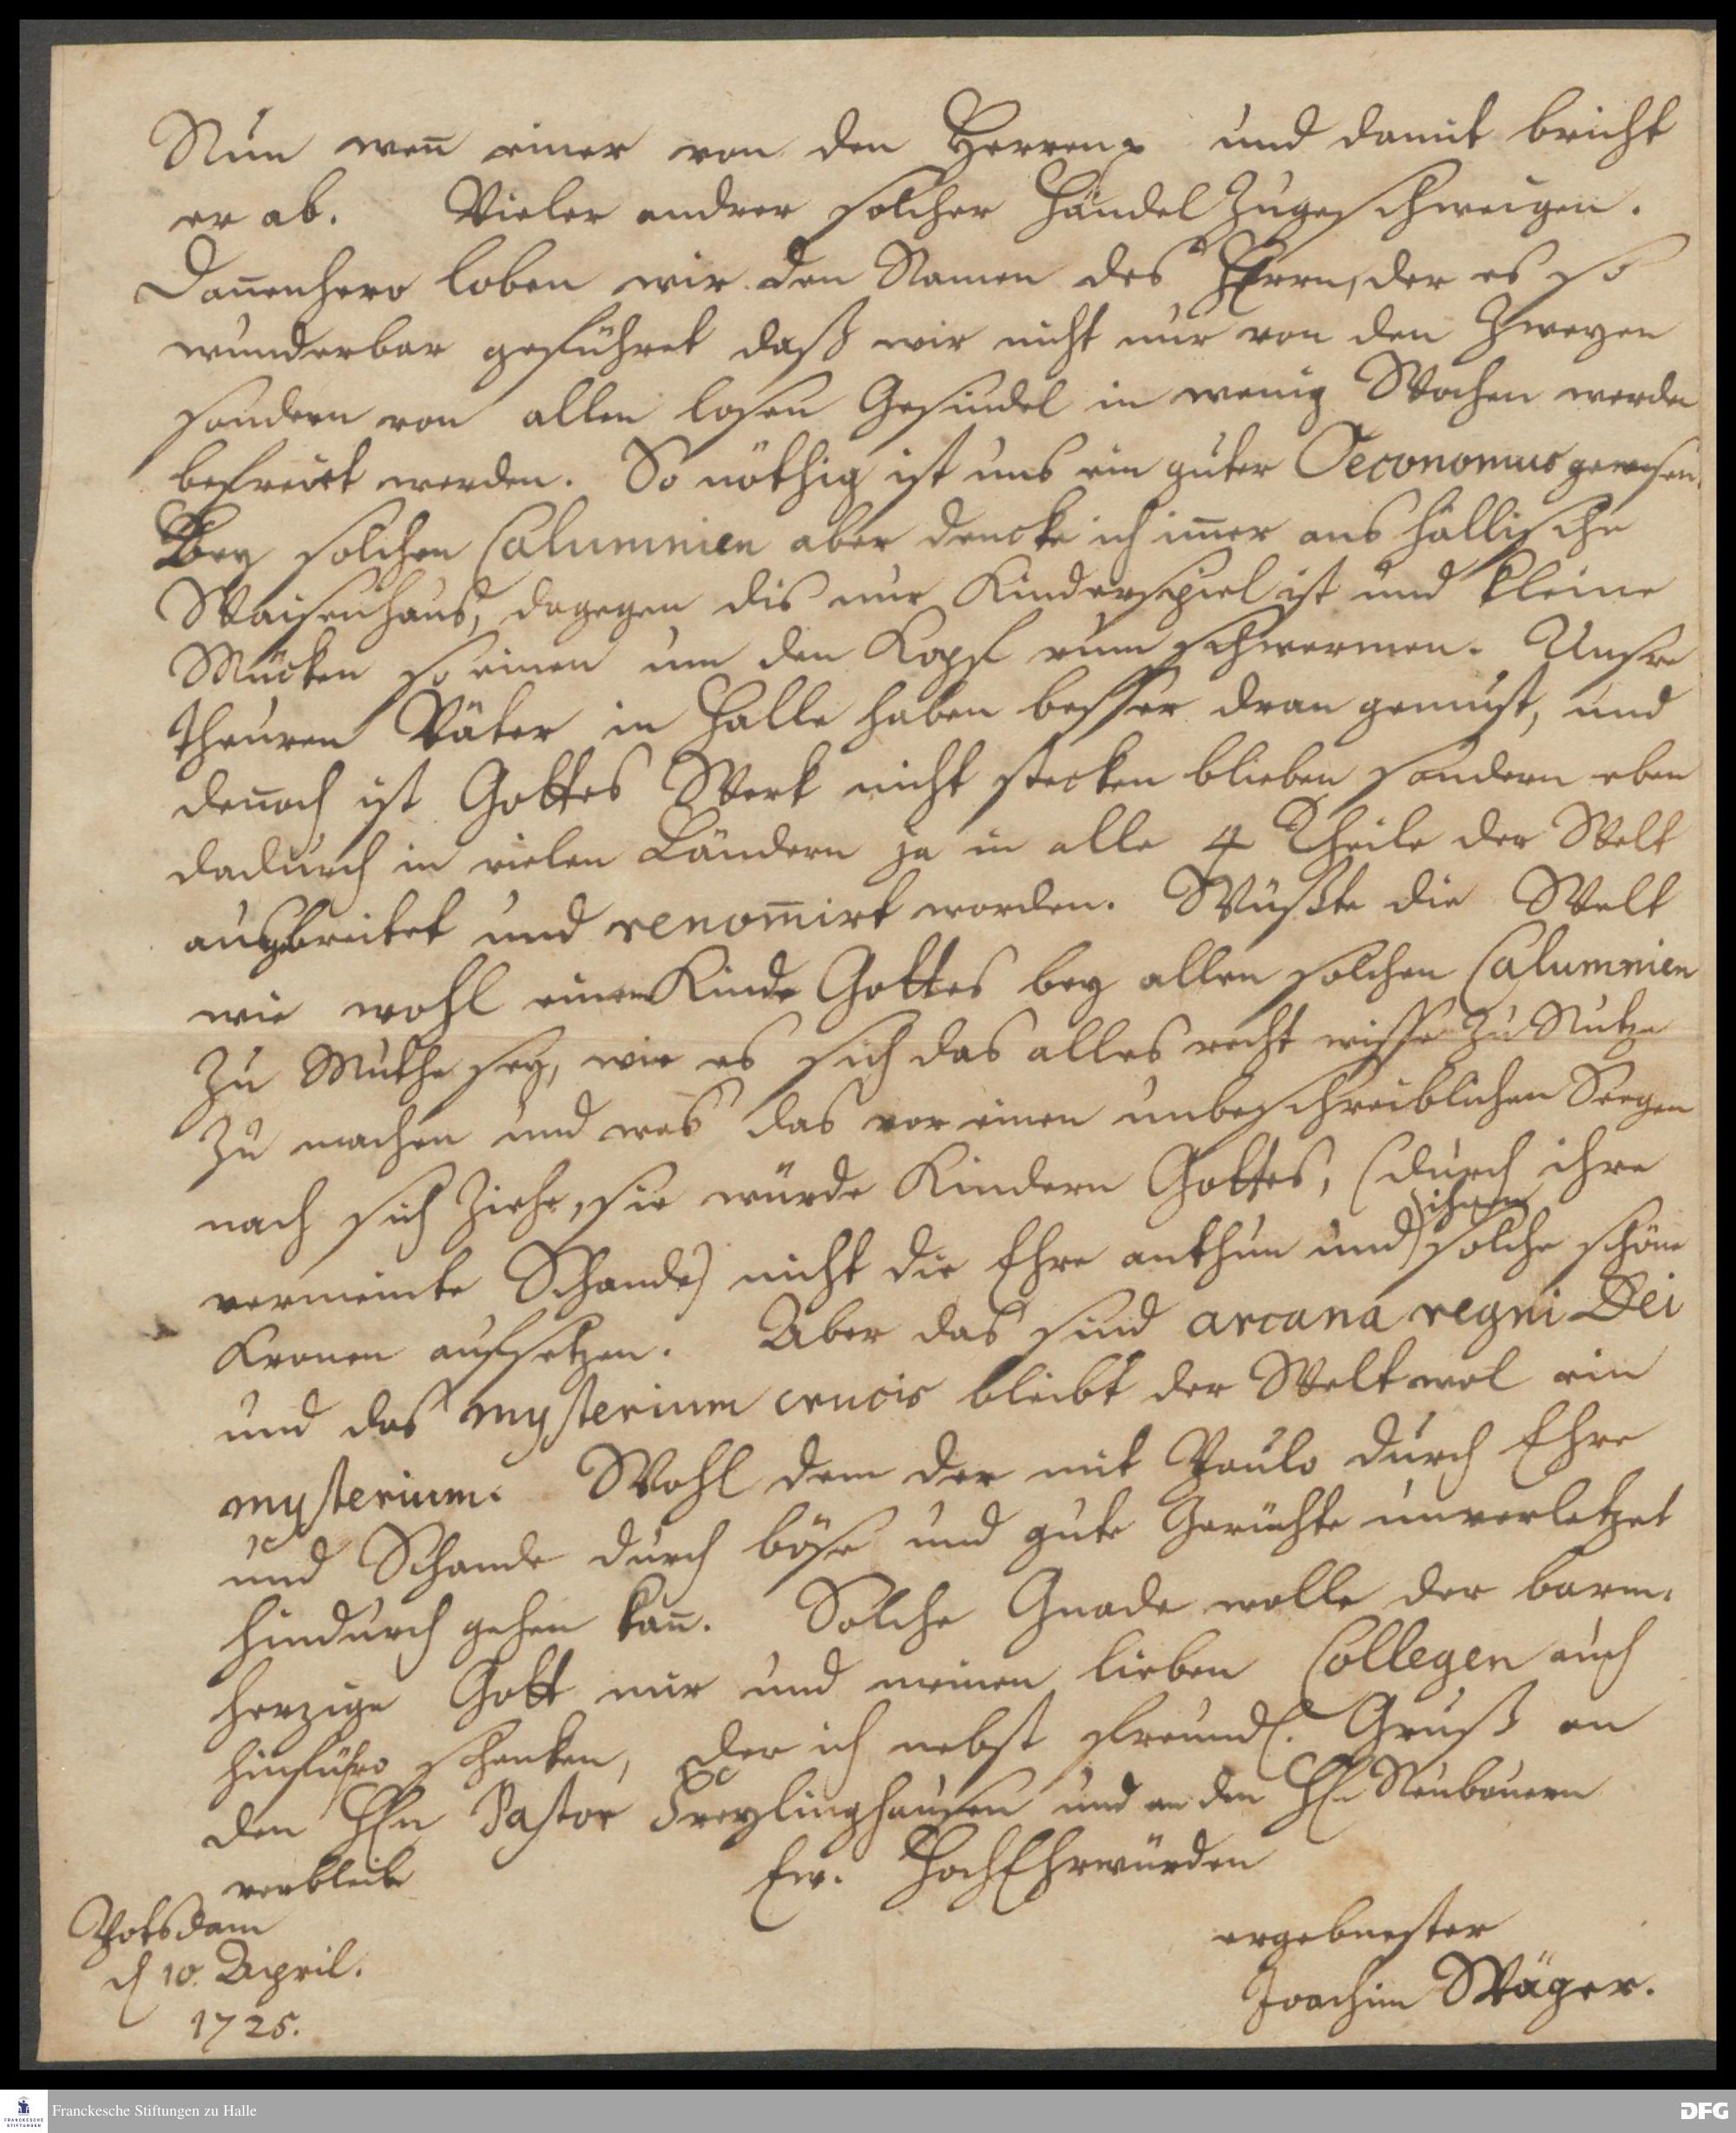 Nun wen̄ einer von den Herren und damit bricht
er ab. Vieler andrer solcher Händel zugeschweigen.
Dan̄enhero loben wir den Namen des HErrn, der es so
wunderbar geführet daß wir nicht nur von den Zweyen
sondern von allen losen Gesindel in wenig Wochen werden
befreiet werden. So nöthig ist uns ein guter Oeconomus gewesen.
Bey solchen Calumnien aber dencke ich im̄er ans hallische
Waisenhaus, dagegen dis nur Kinderspiel ist und kleine
Mücken so einen um den Kopf rum schwermen. Unsre
theuren Väter in Halle haben besser dran gemust, und
den̄och ist Gottes Werk nicht stecken blieben sondern eben
dadurch in vielen Ländern ja in alle 4 Theile der Welt
ausgebreitet und renom̄irt worden. Wüßte die Welt
wie wohl einem Kinde Gottes bey allen solchen Calumnien
zu Muthe sey, wie es sich das alles recht wisse zu Nutze
zu machen und was das vor einen unbeschreiblichen Seegen
nach sich ziehe, sie würde Kindern Gottes, (durch ihre
vermeinte Schande) nicht die Ehre anthun und ihnen solche schöne
Kronen aufsetzen. Aber das sind arcana regni Dei
und das mysterium crucis bleibt der Welt wol ein
mysterium. Wohl dem der mit Paulo durch Ehre
und Schande durch böse und gute Gerüchte unverletzet
hindurch gehen kan̄. Solche Gnade wolle der barm-
herzige Gott mir und meinen lieben Collegen auch
hinführo schenken, der ich nebst freundl. Gruß an
den HEn Pastor Freylinghausen und an den HEn Neubauern
verbleibe Ew. HochEhrwürden
Potsdam
d 10. April.
1725.
ergebenster
Joachim Wäger.
Franckesche Stiftungen zu Halle
DFG